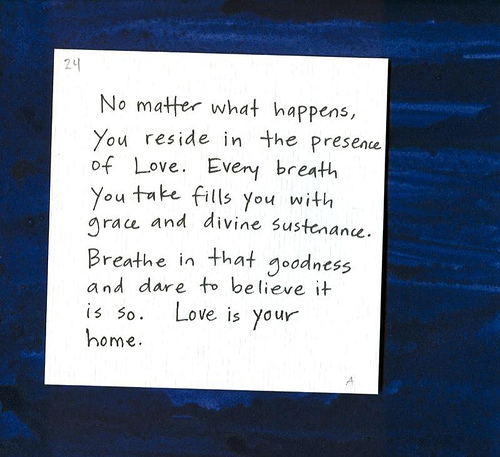 24
No matter what happens,
You reside in the presence
of Love. Every breath
you take fills you with
grace and divine sustenance.
Breathe in that goodness
and dare to believe it
is so. Love is your
home.
A